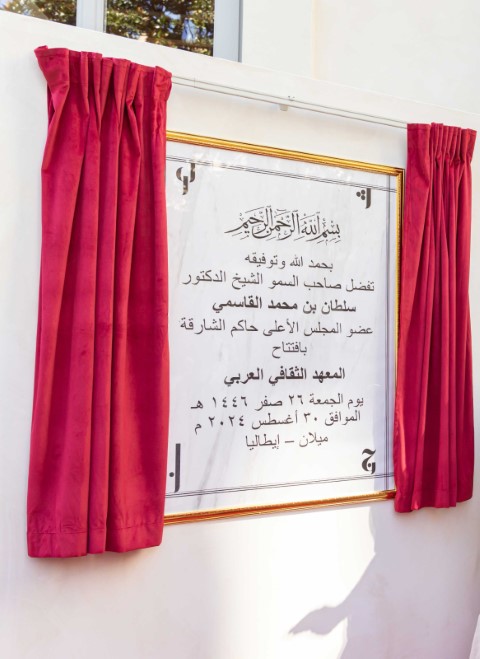 بسم الله الرحمن الرحيم
بحمد الله وتوفيقه
تفضل صاحب السمو الشيخ الدكتور
سلطان بن محمد القاسمي
عضو المجلس الأعلى حاكم الشارقة
بافتتاح
المعهد الثقافي العربي
يوم الجمعة ٢٦ صفر ١٤٤٦ هـ
الموافق ٣٠ أغسطس ٢٠٢٤ م
ميلان – إيطاليا